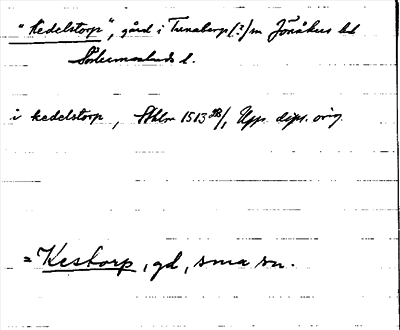 "Kedelstorp", gård i Tunaberg(?)sn Jönåkers hd
Södermanlands l.
i kedelstorp, Sthlm 1513 28/1, Upps. dipl. orig.
= Kestorp, gd, smä sn.